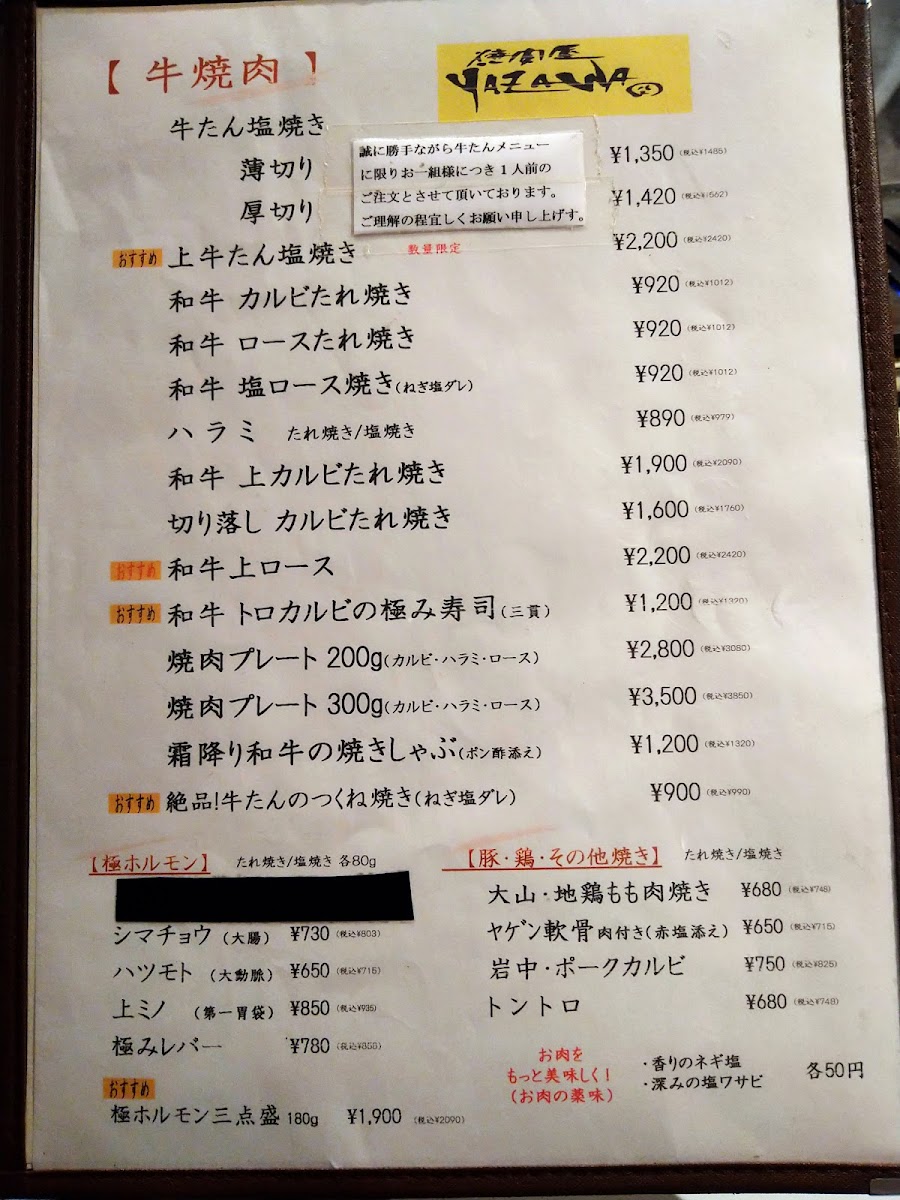 【 牛焼肉 】
焼肉屋
YAZAWA
牛たん塩焼き
誠に勝手ながら牛たんメニュー
に限りお一組様につき1人前の
ご注文とさせて頂いております。
ご理解の程宜しくお願い申し上げます。
薄切り ¥1,350 (税込¥1485)
厚切り ¥1,420 (税込¥1562)
おすすめ 上牛たん塩焼き 数量限定 ¥2,200 (税込¥2420)
和牛 カルビたれ焼き ¥920 (税込¥1012)
和牛 ロースたれ焼き ¥920 (税込¥1012)
和牛 塩ロース焼き(ねぎ塩ダレ) ¥920 (税込¥1012)
ハラミ たれ焼き/塩焼き ¥890 (税込¥979)
和牛 上カルビたれ焼き ¥1,900 (税込¥2090)
切り落し カルビたれ焼き ¥1,600 (税込¥1760)
おすすめ 和牛上ロース ¥2,200 (税込¥2420)
おすすめ 和牛トロカルビの極み寿司(三貫) ¥1,200 (税込¥1320)
焼肉プレート 200g(カルビ・ハラミ・ロース) ¥2,800 (税込¥3080)
焼肉プレート 300g(カルビ・ハラミ・ロース) ¥3,500 (税込¥3850)
霜降り和牛の焼きしゃぶ(ポン酢添え) ¥1,200 (税込¥1320)
おすすめ 絶品!牛たんのつくね焼き(ねぎ塩ダレ) ¥900 (税込¥990)
【極ホルモン】 たれ焼き/塩焼き 各80g
シマチョウ (大腸) ¥730 (税込¥803)
ハツモト (大動脈) ¥650 (税込¥715)
上ミノ (第一胃袋) ¥850 (税込¥935)
極みレバー ¥780 (税込¥858)
おすすめ
極ホルモン三点盛 180g ¥1,900 (税込¥2090)
【豚・鶏・その他焼き】 たれ焼き/塩焼き
大山・地鶏もも肉焼き ¥680 (税込¥748)
ヤゲン軟骨肉付き(赤塩添え) ¥650 (税込¥715)
岩中・ポークカルビ ¥750 (税込¥825)
トントロ ¥680 (税込¥748)
お肉を
もっと美味しく!
(お肉の薬味)
・香りのネギ塩
・深みの塩ワサビ
各50円